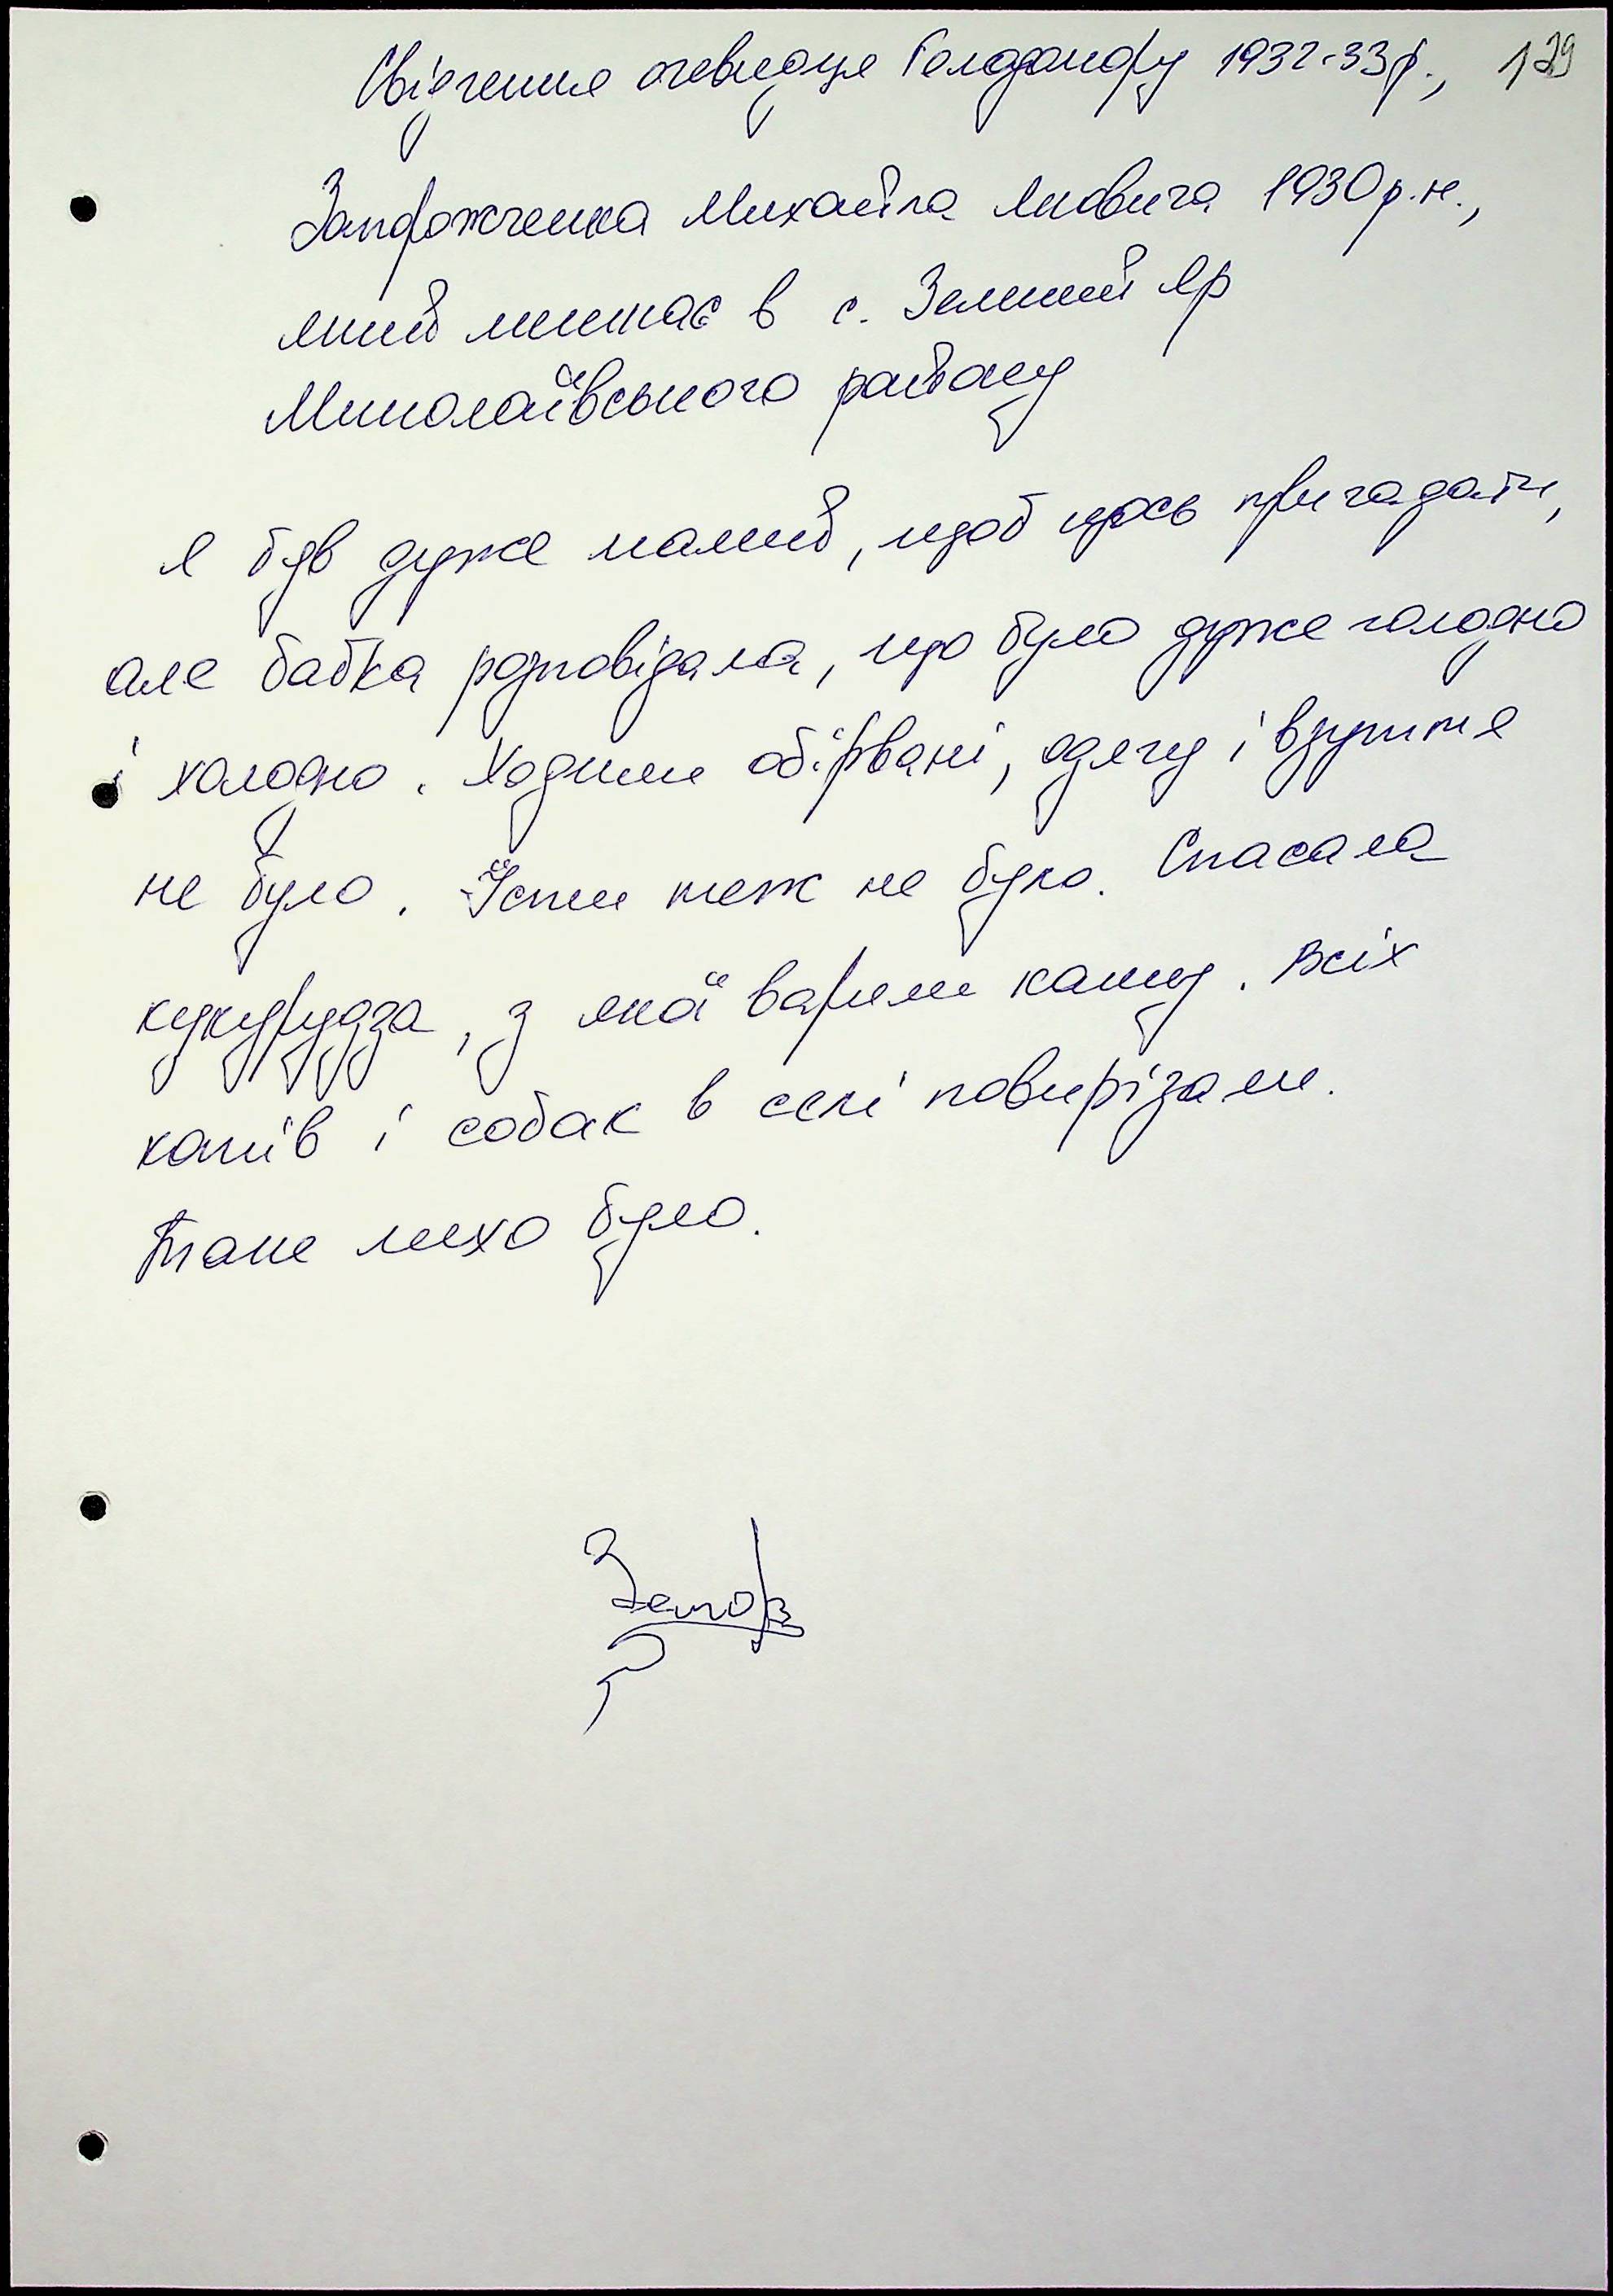 Свідчення очевидця Голодомору 1932-33р., 129
Запорожченка Михайла Яковича 1930 р.н.,
який мешкає в с. Зелений Яр
Миколаївського району
Я був дуже малий, щоб щось пригадати,
але бабка розповідала, що було дуже голодно
і холодно. Ходили обірвані, одягу і взуття
не було. Їсти теж не було. Спасала
кукурудза, з якої варили кашу. Всіх
котів і собак в селі повирізали.
Таке лихо було.